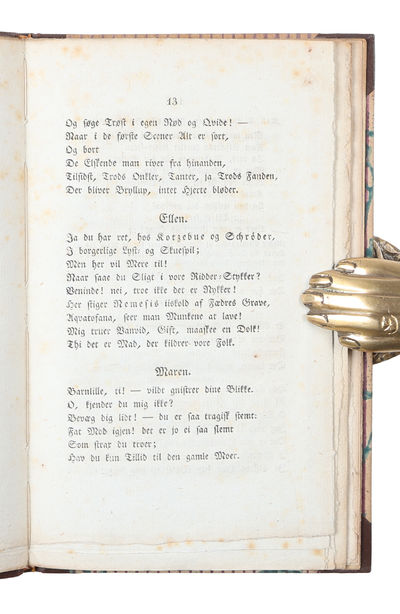 13
Og søge Trøst i egen Nød og Qvide! —
Naar i de første Scener Alt er sort,
Og bort
De Elskende man river fra hinanden,
Tilsidst, Trods Onkler, Tanter, ja Trods Fanden,
Der bliver Bryllup, intet Hjerte bløder.
Ellen.
Ja du har ret, hos Kotzebue og Schröder,
I borgerlige Lyst- og Skuespil;
Men her vil Mere til!
Naar saae du Sligt i vore Ridder-Stykker?
Veninde! nei, troe ikke det er Nykker!
Her stiger Nemesis iiskold af Fædres Grave,
Aqvatofana, seer man Munkene at lave!
Mig truer Vanvid, Gift, maaskee en Dolk!
Thi det er Mad, der kildrer vore Folk.
Maren.
Barnlille, ti! — vildt gnistrer dine Blikke.
O, kjender du mig ikke?
Bevæg dig lidt! — du er saa tragisk stemt:
Fat Mod igjen! det er jo ei saa slemt
Som strax du troer;
Hav du kun Tillid til den gamle Moer.